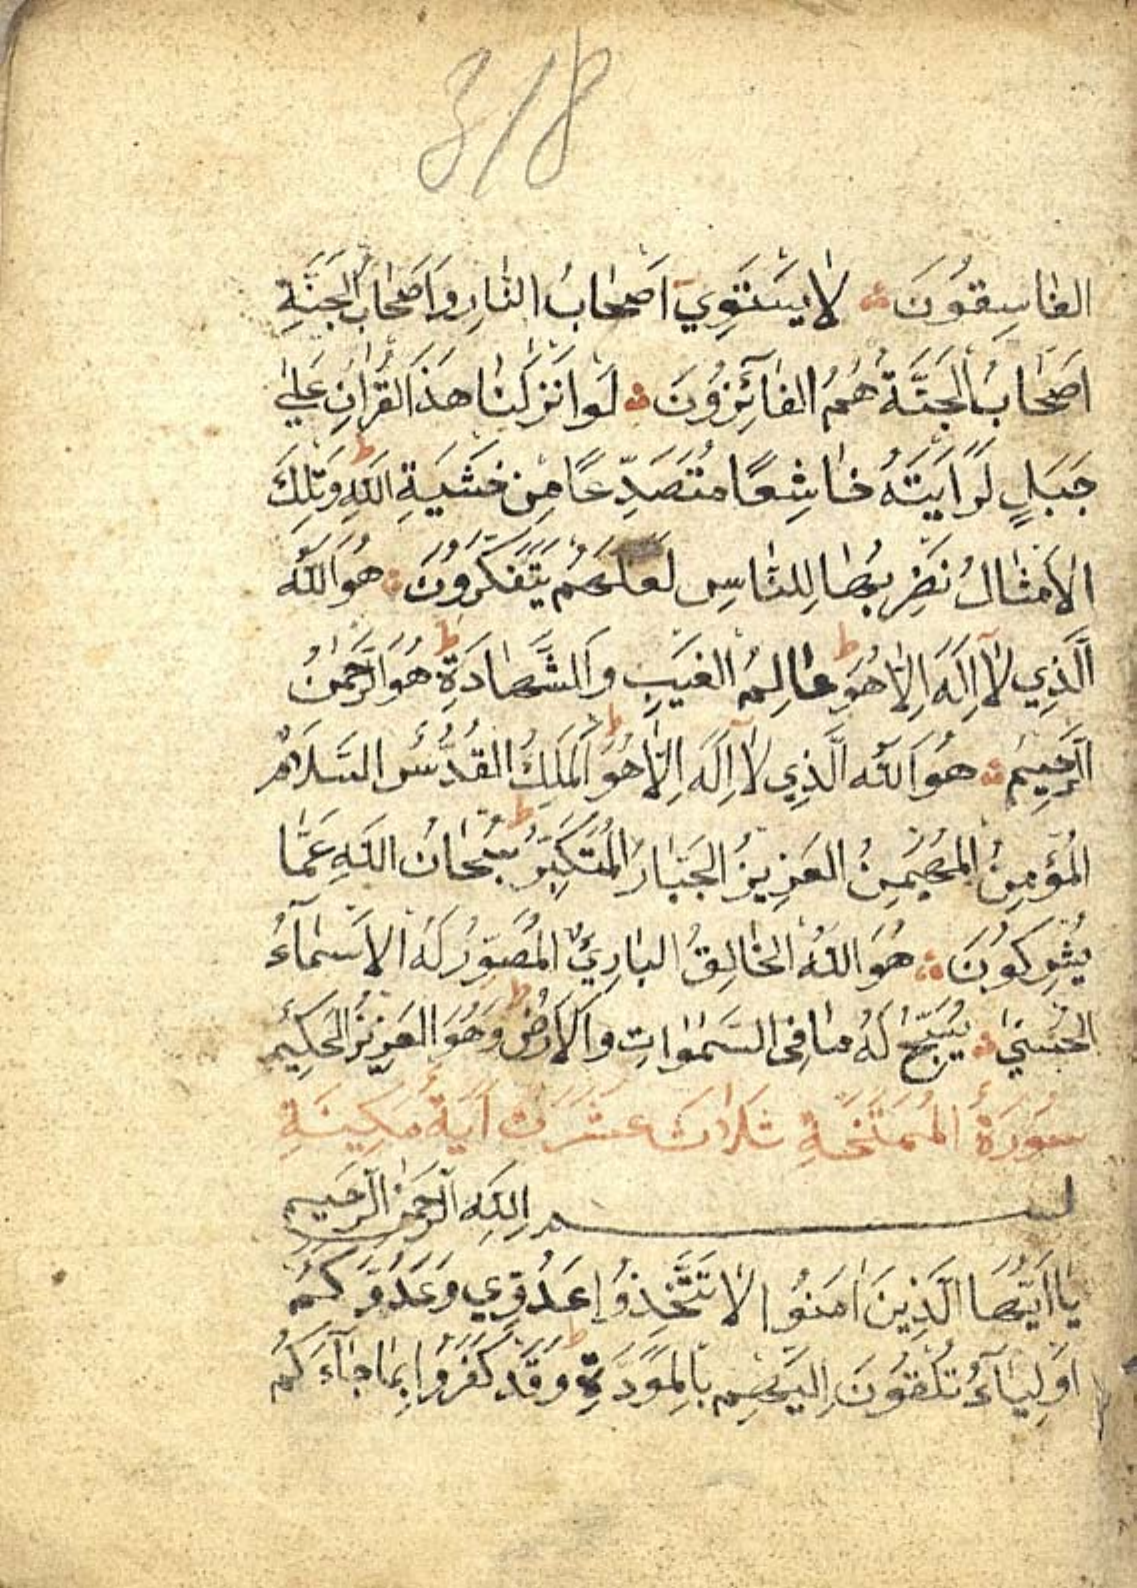 318
الفاسِقُونَ لا يَسْتَوِي اَصْحَابُ النَّارِ وَاَصْحَابُ الجَنَّةِ
اَصْحَابُ الْجَنَّةِ هُمُ الفَآئِزُونَ لَوْ اَنْزَلْنَا هٰذَا القُرْاٰنَ عَلٰى
جَبَلٍ لَرَاَيْتَهُ خَاشِعًا مُتَصَدِّعًا مِنْ خَشْيَةِ اللّٰهِ ط وَتِلْكَ
الاَمْثَالُ نَضْرِبُهَا لِلنَّاسِ لَعَلَّهُمْ يَتَفَكَّرُونَ هُوَ اللّٰهُ
الَّذِي لآ اِلٰهَ اِلاَّ هُوَ ط عَالِمُ الغَيْبِ وَالشَّهَادَةِ ط هُوَ الرَّحْمٰنُ
الرَّحِيمُ هُوَ اللّٰهُ الَّذِي لآ اِلٰهَ اِلاَّ هُوَ ط اَلْمَلِكُ القُدُّسُ السَّلَامُ
المُؤْمِنُ المُهَيْمِنُ العَزِيزُ الجَبَّارُ المُتَكَبِّرُ ط سُبْحَانَ اللّٰهِ عَمَّا
يُشْرِكُونَ هُوَ اللّٰهُ الخَالِقُ البَارِئُ المُصَوِّرُ لَهُ الاَسْمَآءُ
الحُسْنٰى يُسَبِّحُ لَهُ مَا فِى السَّمٰوَاتِ وَالْاَرْضِ ط وَهُوَ العَزِيزُ الحَكِيمُ
سُورَةُ المُمْتَحَنَةِ ثَلَاثَ عَشَرَتَ اٰيَةً مَدِينَةِ
بسم اللّٰهِ الرَّحْمٰنِ الرَّحِيمِ
يَا اَيُّهَا الَّذِينَ اٰمَنُوا لَا تَتَّخِذُوا عَدُوِّي وَعَدُوَّكُمْ
اَوْلِيَآءَ تُلْقُونَ اِلَيْهِمْ بِالْمَوَدَّةِ ط وَقَدْ كَفَرُوا بِمَا جَآءَكُمْ